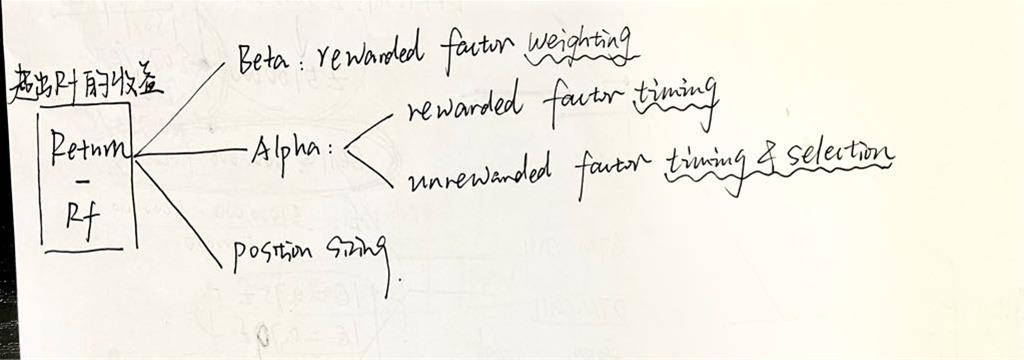 超出Rf的收益
Return
-
Rf
Beta: rewarded factor weighting
Alpha:
rewarded factor timing
unrewarded factor timing & selection
position sizing.